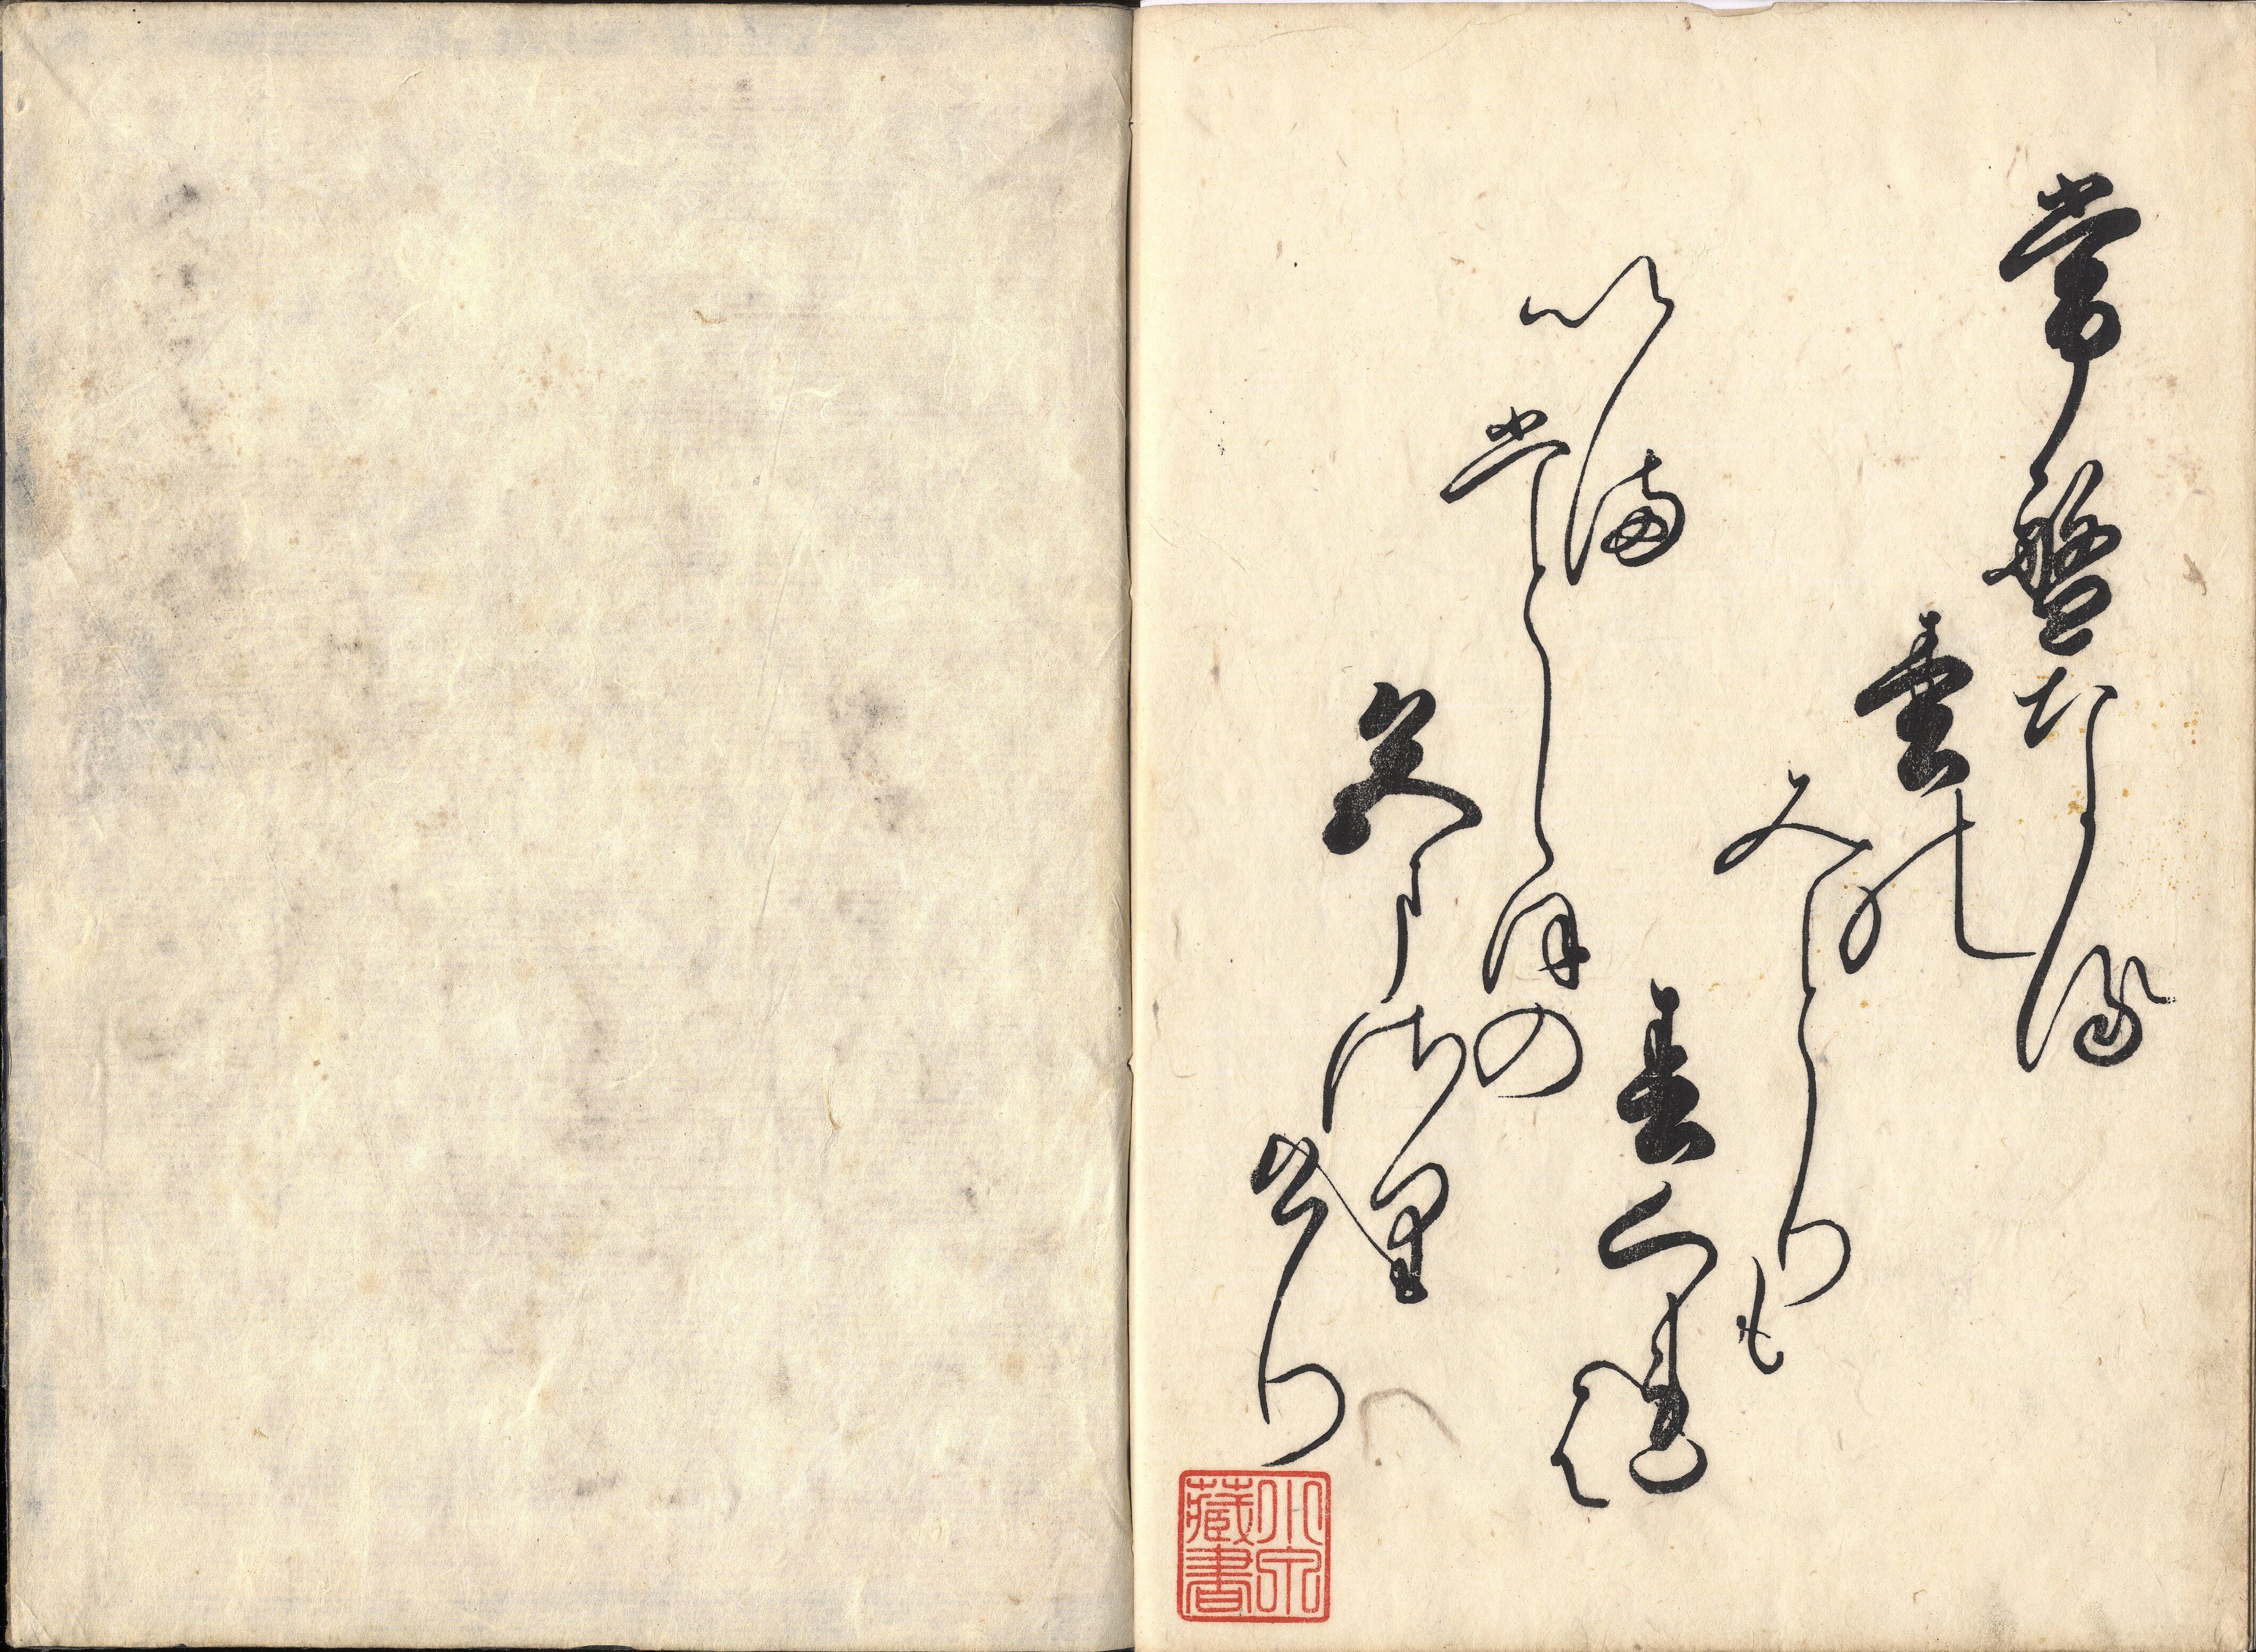 常盤なる
松の
みとりも
春くれは
いま
ひとしほの
色まさり
けり
小泉藏書